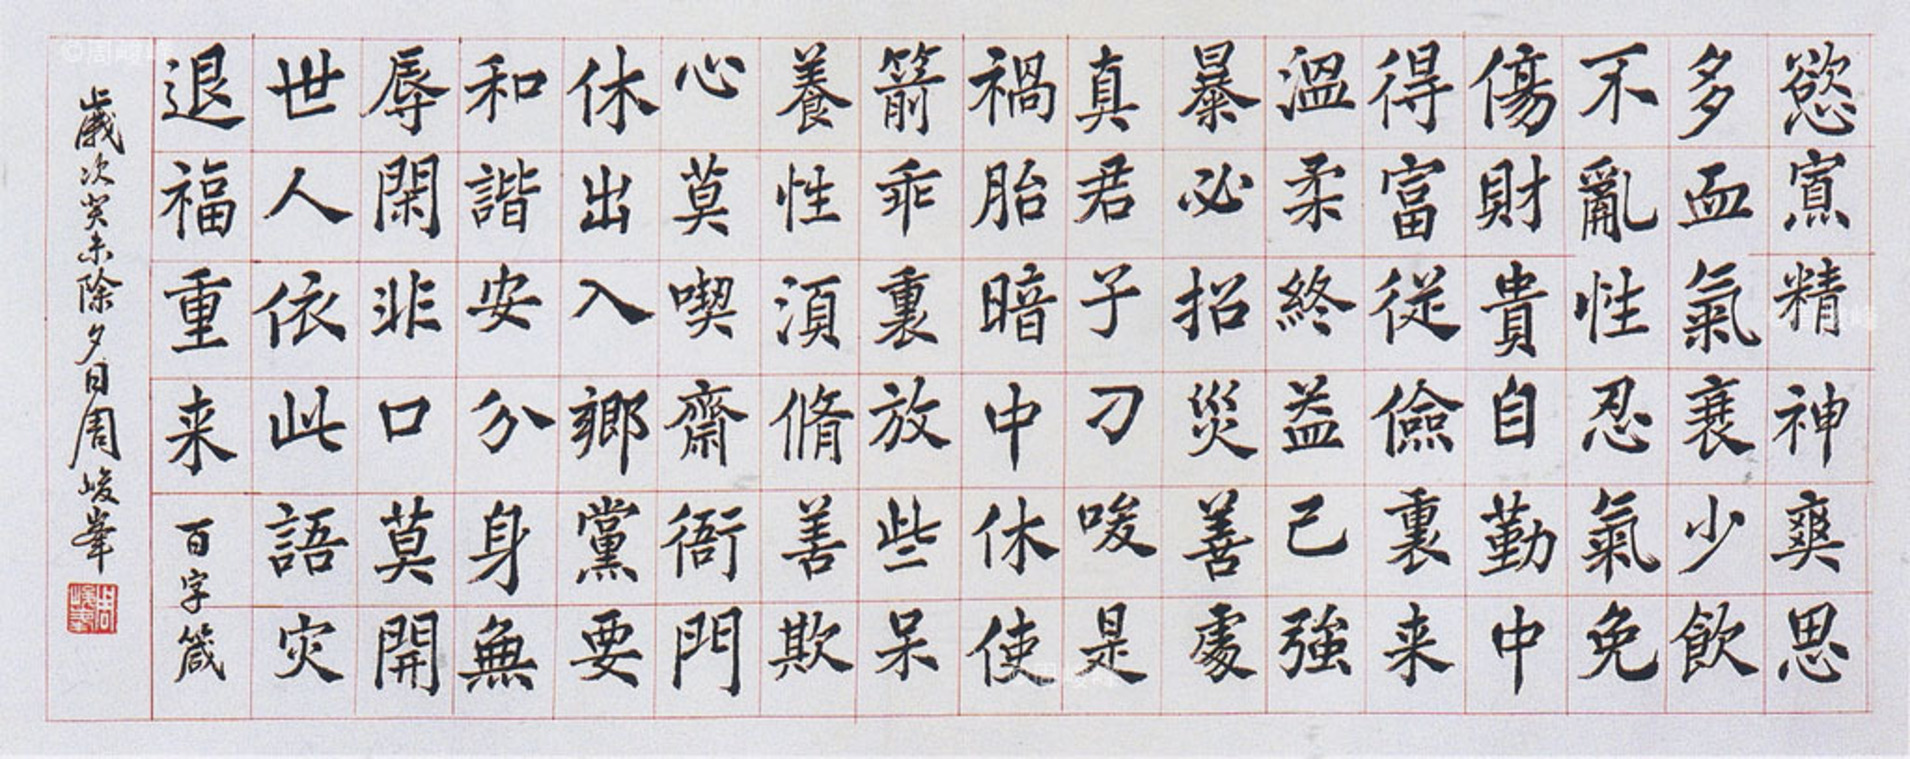 慾寡精神爽思
多血氣衰少飲
不亂性忍氣免
傷財貴自勤中
得富從儉裏来
溫柔終益己強
暴必招災善處
真君子刁唆是
禍胎暗中休使
箭乖裏放些呆
養性須脩善欺
心莫喫齋衙門
休出入鄉黨要
和諧安分身無
辱閑非口莫開
世人依此語灾
退福重来
百字箴
歲次癸未除夕日周峻峯